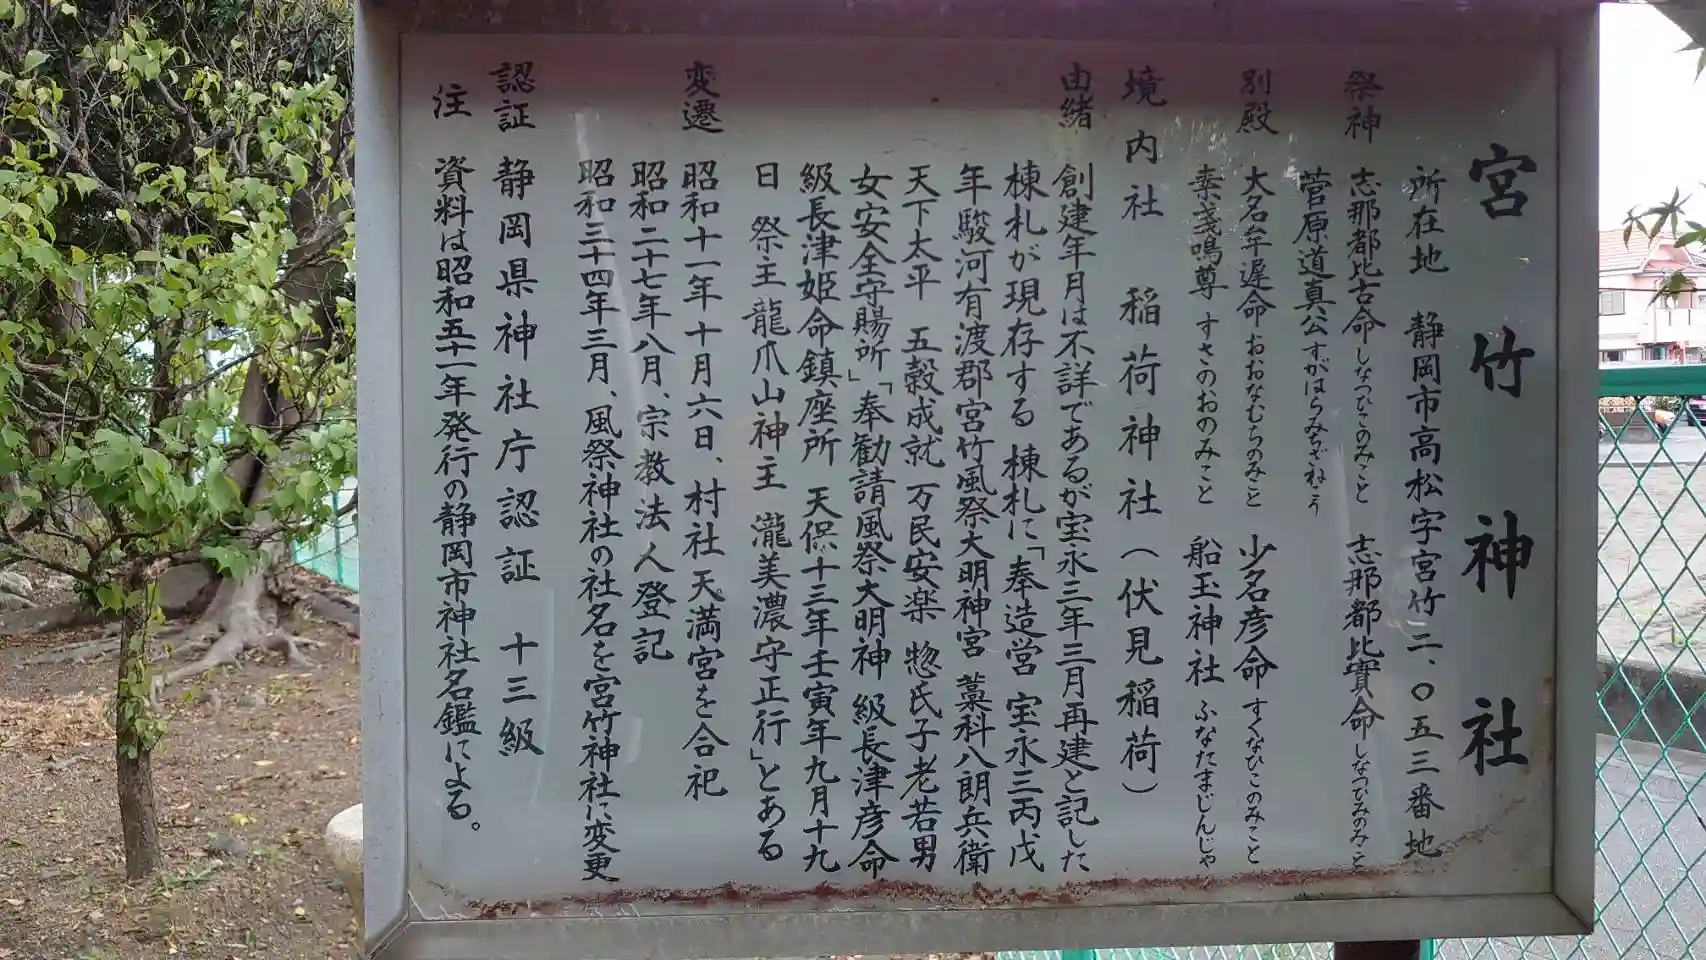 宮竹神社
所在地 静岡市高松字宮竹二、〇五三番地
祭神 志那都比古命 しなつひこのみこと 志那都比賣命 しなつひみのみこと
菅原道真公 すがはらみちざねこう
別殿 大名牟遅命 おおなむちのみこと 少名彦命 すくなひこのみこと
素戔鳴尊 すさのおのみこと 船玉神社 ふなたまじんじゃ
境内社 稲荷神社(伏見稲荷)
由緒 創建年月は不詳であるが宝永三年三月再建と記した
棟札が現存する 棟札に「奉造営 宝永三丙戌
年駿河有渡郡宮竹風祭大明神宮 藁科八朗兵衛
天下太平 五穀成就 万民安楽 惣氏子老若男
女安全守賜所」「奉勧請風祭大明神 級長津彦命
級長津姫命鎮座所 天保十三年壬寅年九月十九
日 祭主龍爪山神主 瀧美濃守正行」とある
変遷 昭和十一年十月六日、村社天満宮を合祀
昭和二十七年八月、宗教法人登記
昭和三十四年三月、風祭神社の社名を宮竹神社に変更
認証 静岡県神社庁認証 十三級
注 資料は昭和五十一年発行の静岡市神社名鑑による。